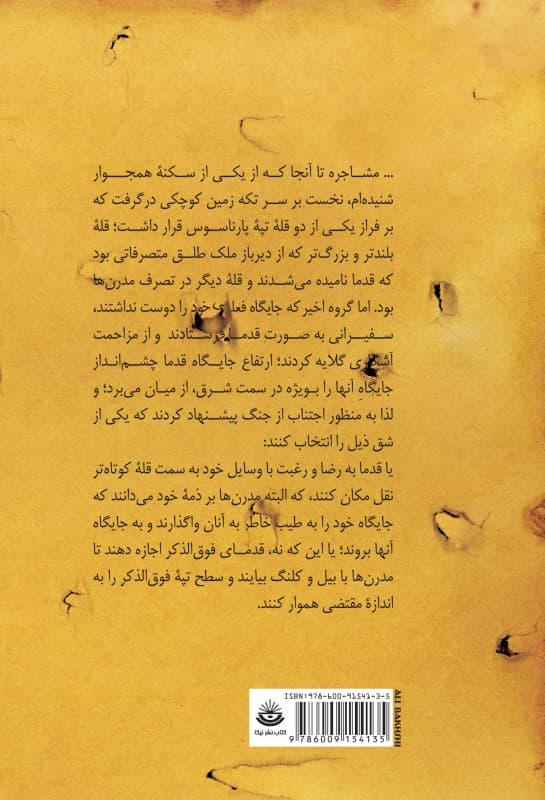 ... مشاجره تا آنجا که از یکی از سکنهٔ همجوار
شنیده‌ام، نخست بر سر تکه زمین کوچکی درگرفت که
بر فراز یکی از دو قلهٔ تپهٔ پارناسوس قرار داشت؛ قلهٔ
بلندتر و بزرگ‌تر که از دیرباز ملک طلق متصرفاتی بود
که قدما نامیده می‌شدند و قلهٔ دیگر در تصرف مدرن‌ها
بود. اما گروه اخیر که جایگاه فعلی خود را دوست نداشتند،
سفیرانی به صورت قدما فرستادند و از مزاحمت
آشکاری گلایه کردند؛ ارتفاع جایگاه قدما چشم‌انداز
جایگاهِ آنها را بویژه در سمت شرق، از میان می‌برد؛ و
لذا به منظور اجتناب از جنگ پیشنهاد کردند که یکی از
شق ذیل را انتخاب کنند:
یا قدما به رضا و رغبت با وسایل خود به سمت قلهٔ کوتاه‌تر
نقل مکان کنند، که البته مدرن‌ها بر ذمهٔ خود می‌دانند که
جایگاه خود را به طیب خاطر به آنان واگذارند و به جایگاه
آنها بروند؛ یا این که نه، قدمای فوق‌الذکر اجازه دهند تا
مدرن‌ها با بیل و کلنگ بیایند و سطح تپهٔ فوق‌الذکر را به
اندازهٔ مقتضی هموار کنند.
ISBN: 978-600-91541-3-5
9 786009 154135
کتاب نشر نیکا
ALI BAKHSHI